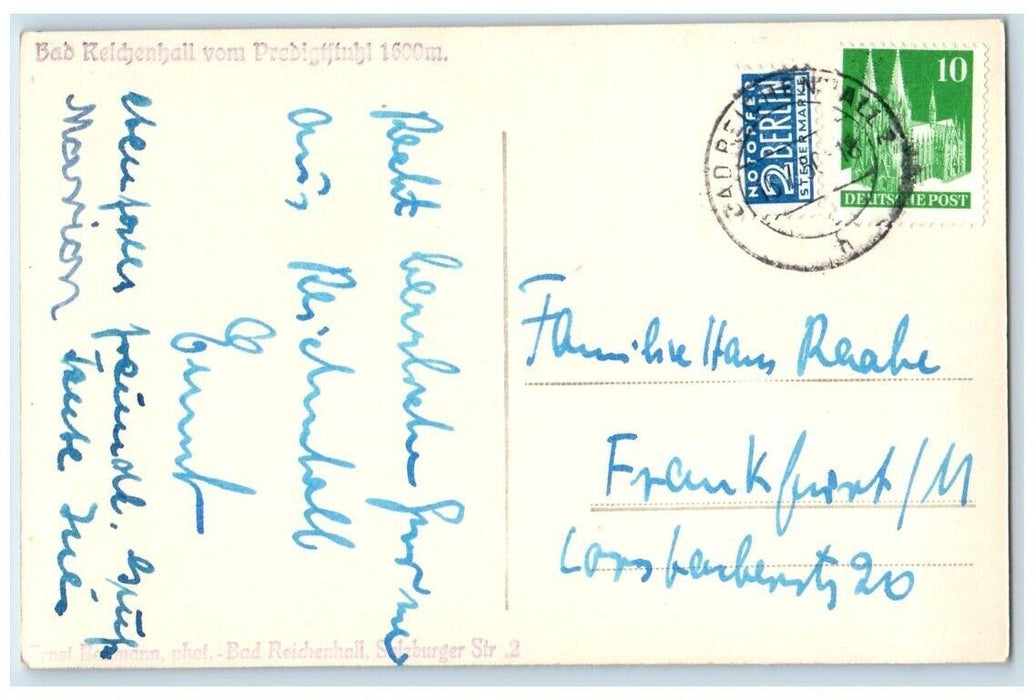 Bad Reichenhall vom Predigtstuhl 1600m.
Recht herzliche Grüsse
aus Reichenhall
Ernst
ebenfalls freundl. Grüße
Marrion Tante
NOTOPFER
2 BERLIN
STEUERMARKE
10
DEUTSCHE POST
BAD REICHENHALL 2
Familie Hans Raabe
Frankfurt/M
Lorsbacherstr 20
Ernst Baumann, phot.-Bad Reichenhall, Salzburger Str .2